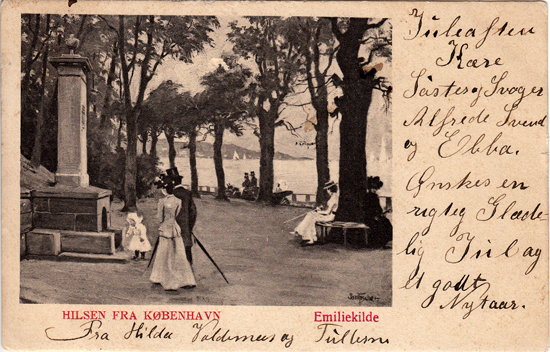 Juleaften
Kære
Søster og Svoger
Alfrede Svend
og Ebba.
Ønskes en
rigtig Glæde
lig Jul og
et godt
Nytaar.
HILSEN FRA KØBENHAVN
Emiliekilde
Fra Hilda Valdemar og